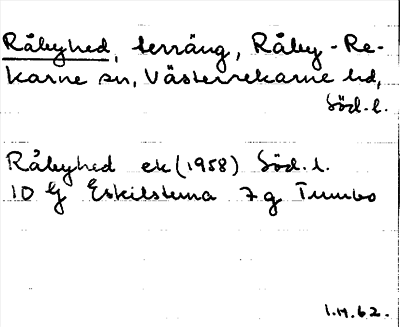 Råbyhed, terräng, Råby-Re-
karne sn, Västerrekarne hd,
Söd.l.
Råbyhed ek (1958) Söd.l.
10 G Eskilstuna 7g Tumbo
1.M.62.